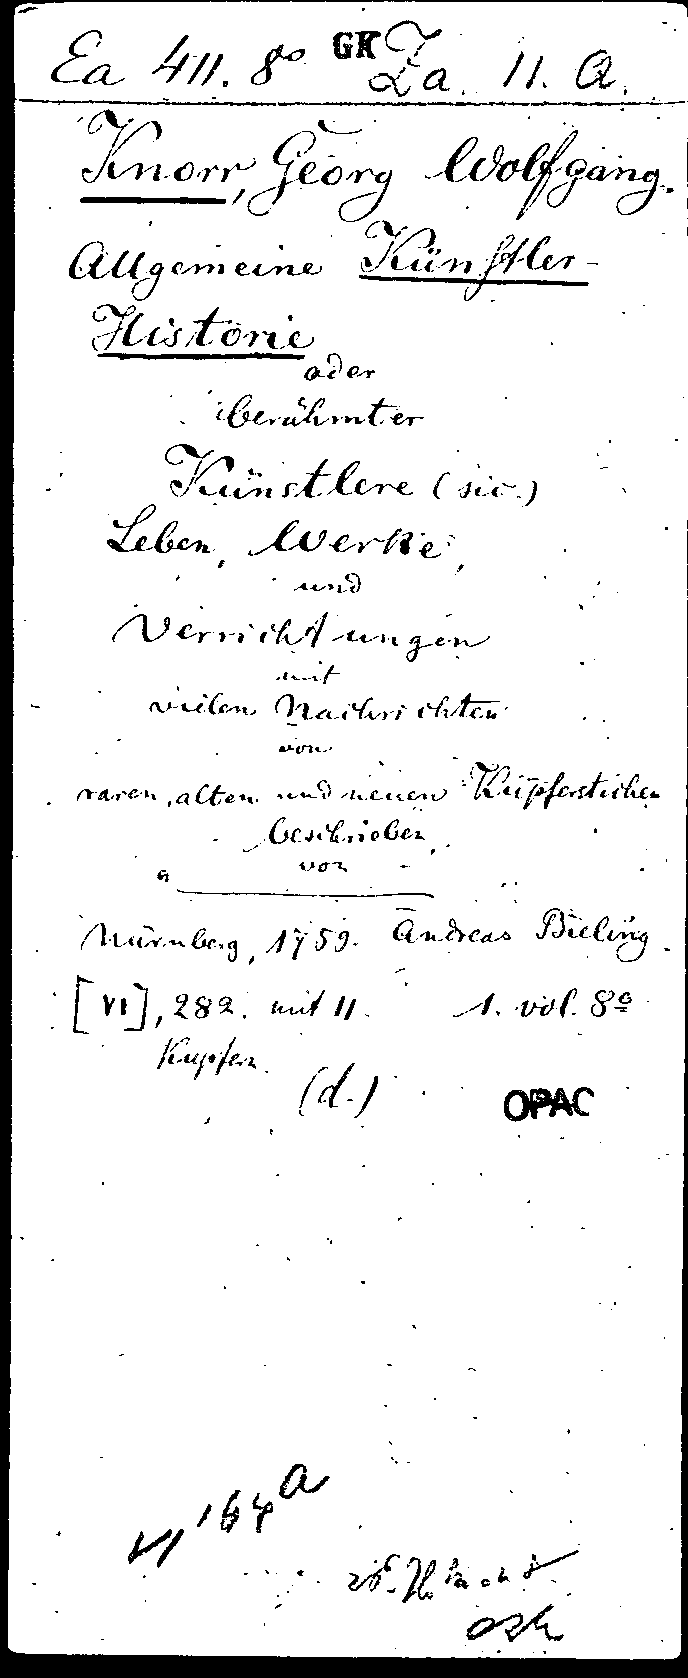 Ea 411. 8° GK Za. 11. A.
Knorr, Georg Wolfgang.
Allgemeine Künstler-
Historie
oder
berühmter
Künstlere (sic.)
Leben, Werke,
und
Verrichtungen
mit
vielen Nachrichten
von
raren, alten und neuen Kupferstichen
beschrieben
von
Nürnberg, 1759. Andreas Bieling.
[VI], 282. mit 11. 1. vol. 8°
Kupfern.
(d.)
OPAC
VI 164 a